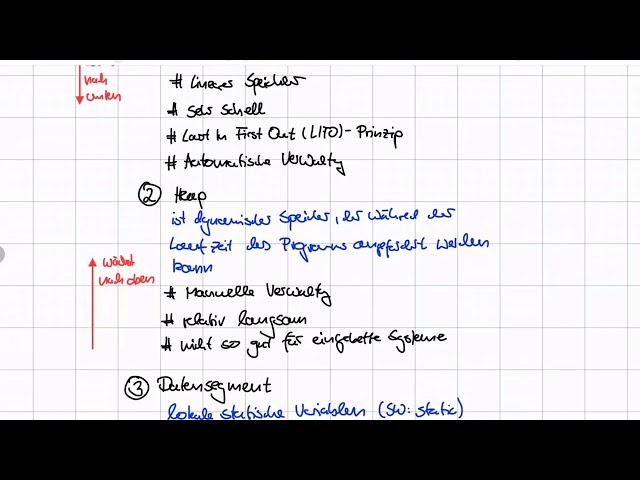 nach
unten
# Lineares Speicher
# Sehr schnell
# Last In First Out (LIFO)-Prinzip
# Automatische Verwaltg
② Heap
ist dynamischer Speicher, der während der
Laufzeit des Programms angefordert werden
kann
wächst
nach oben
# Manuelle Verwaltg
# relativ langsam
# nicht so gut für eingebette Systeme
③ Datensegment
lokale statische Variablen (SW: static)